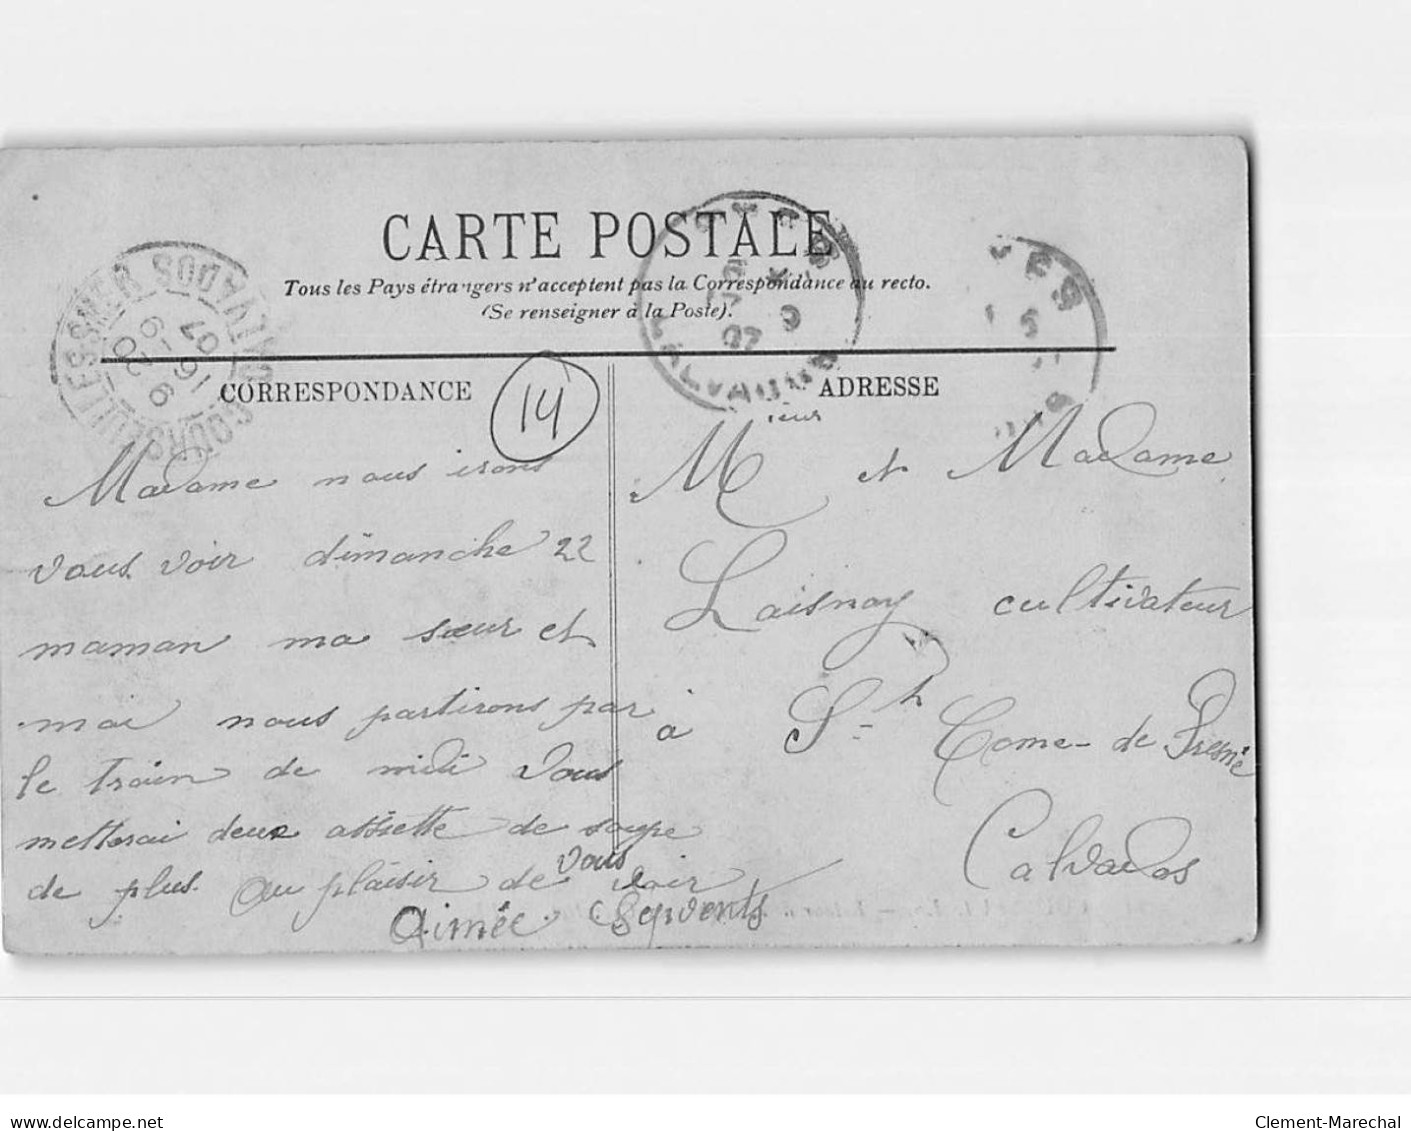 CARTE POSTALE
Tous les Pays étrangers n'acceptent pas la Correspondance au recto.
(Se renseigner à la Poste).
COURSEULLES S MER CALVADOS
9 20
16 -9
07
CALVADOS
07
CORRESPONDANCE
14
ADRESSE
Madame nous irons
vous voir dimanche 22
maman ma sœur et
moi nous partirons par
le train de midi Vous
metterai deux assiette de soupe
de plus. Au plaisir de vous voir
Aimée Servents
M ieur et Madame
Laisnay cultivateur
à St Come-de Fresné
Calvados
delcampe.net
Clement-Marechal